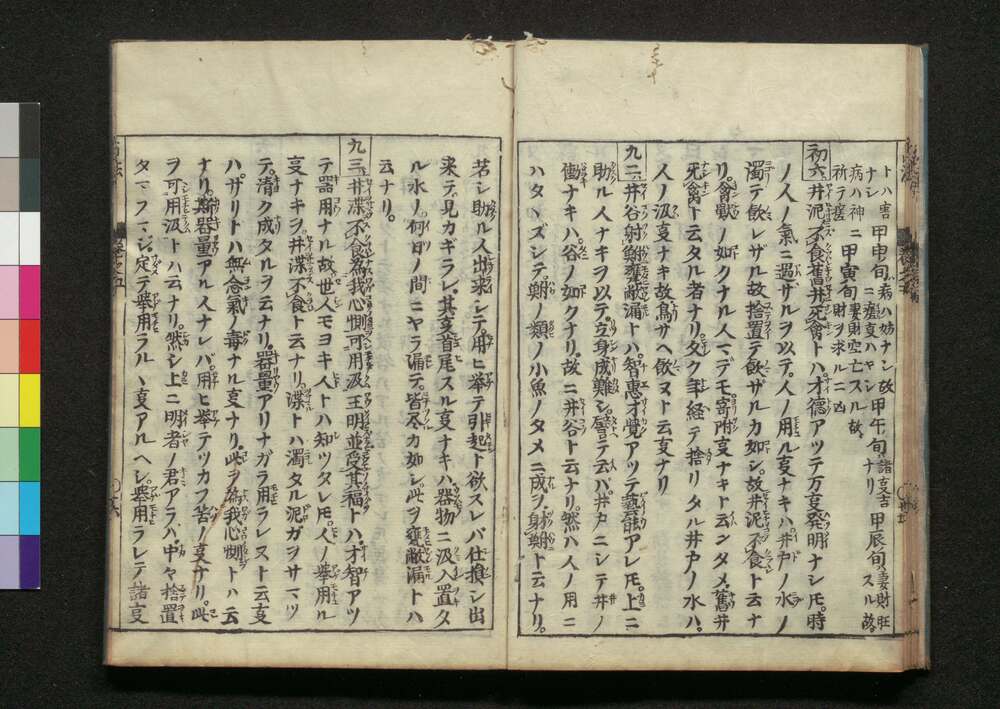 トハ害 甲申旬 病ハ妨ナシ故 甲午旬 諸㕝吉 甲辰旬 妻財旺スル故
ナシ 病ハ神ニ祈テ痊 甲寅旬 妻財空亡スル故 財ヲ求ニハ凶
初六 井泥不食舊井死禽トハ才德アツテ万㕝発明ナシ𪜈時
ノ人ノ氣ニ遇サルヲ以テ人ノ用ル㕝ナキハ井戸ノ水ノ
濁テ飲レザル故捨置テ飲ザルカ如シ故井泥不食ト云ナ
リ禽獸ノ如クナル人マデモ寄附㕝ナキト云ンタメ舊井
死禽ト云タル者ナリ久ク年経テ捨リタル井戸ノ水ハ
人ノ汲㕝ナキ故鳥サヘ飲ヌト云㕝ナリ
九二 井谷射鮒甕敝漏トハ智恵才覺アツテ藝能アレ𪜈上ニ
助ル人ナキヲ以テ立身成難シ譬テ云バ井戸ニシテ井ノ
働ナキハ谷ノ如クナリ故ニ井谷ト云ナリ然ハ人ノ用ニ
ハタヽズシテ鮒ノ類ノ小魚ノタメニ成ヲ射鮒ト云ナリ
若シ助ル人出來シテ用ヒ挙テ引起ト欲スレバ仕損シ出
来テ見カギラレ其㕝首尾スル㕝ナキハ器物ニ汲入置タ
ル水ノ何日ノ間ニヤラ漏テ皆尽カ如シ此ヲ甕敝漏トハ
云ナリ
九三 井渫不食為我心惻可用汲王明並受其福トハ才智アツ
テ器用ナル故世人モヨキ人トハ知ツタレ𪜈人ノ挙用ル
㕝ナキヲ井渫不食ト云ナリ渫トハ濁タル泥ガヲサマツ
テ清ク成タルヲ云ナリ器量アリナガラ用ラレヌト云㕝
ハサリトハ無念氣ノ毒ナル㕝ナリ此ヲ為我心惻トハ云
ナリ斯器量アル人ナレバ用ヒ挙テツカフ苦ノ㕝ナリ此
ヲ可用汲トハ云ナリ然シ上ニ明者ノ君アラバ中々捨置
タマフマジ定テ挙用ラルヽ㕝アルヘシ挙用ラレテ諸㕝